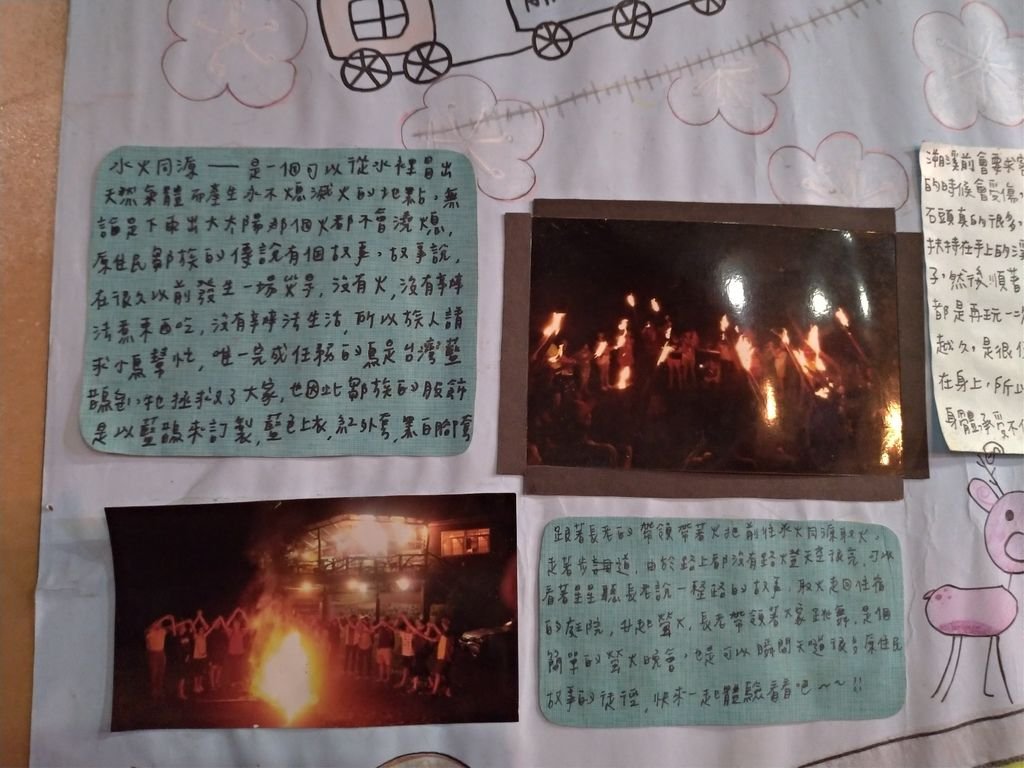 水火同源——是一個可以從水裡冒出
天然氣體而產生永不熄滅火的地點,無
論是下雨出大太陽那個火都不會澆熄,
原住民鄒族的傳說有個故事,故事說,
在很久以前發生一場災害,沒有火,沒有辦
法煮東西吃,沒有辦法生活,所以族人請
求小鳥幫忙,唯一完成任務的鳥是台灣藍
鵲,牠拯救了大家,也因此鄒族的服飾
是以藍鵲來訂製,藍色上衣,紅外套,黑白腳套
跟著長老的帶領帶著火把前往水火同源取火,
走著步道,由於路上都沒有路燈天空很亮,可以
看著星星聽長老說一整路的故事,取火走回住宿
的庭院,升起營火,長老帶領著大家跳舞,是個
簡單的營火晚會,也是可以瞬間知道很多原住民
故事的徒徑,快來一起體驗看看吧~~!!
溯溪前會要求
的時候會受傷
石頭真的很多,
扶持在手上的
子,然後順著
都是再玩一
越久,是很
在身上,所以
身體承受不